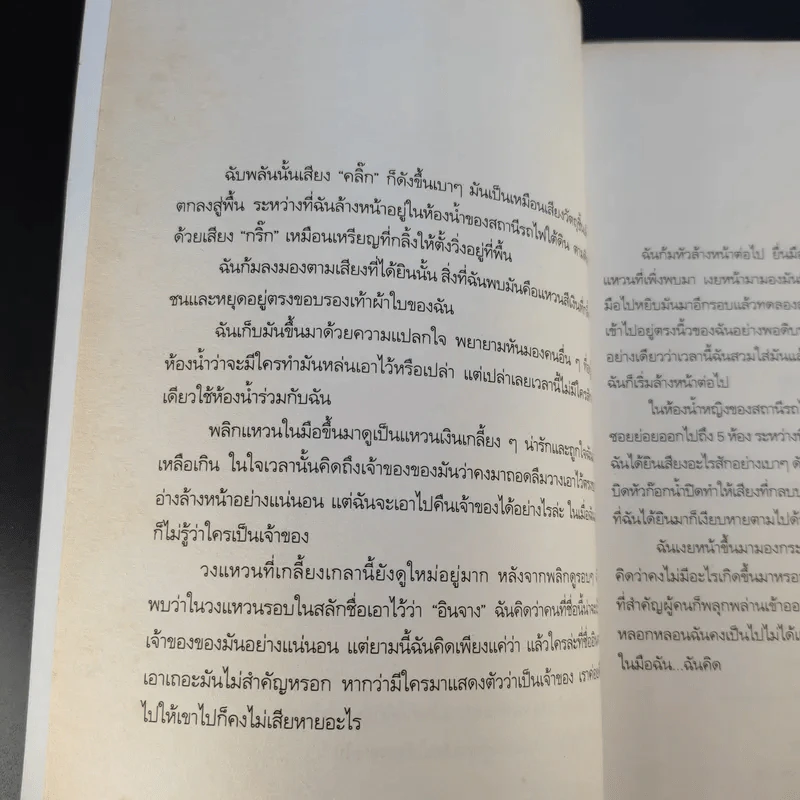 ฉับพลันนั้นเสียง “คลิ๊ก” ก็ดังขึ้นเบาๆ มันเป็นเหมือนเสียงวัตถุ
ตกลงสู่พื้น ระหว่างที่ฉันล้างหน้าอยู่ในห้องน้ำของสถานีรถไฟใต้ดิน
ด้วยเสียง “กริ๊ก” เหมือนเหรียญที่กลิ้งให้ตั้งวิ่งอยู่ที่พื้น
ฉันก้มลงมองตามเสียงที่ได้ยินนั้น สิ่งที่ฉันพบมันคือแหวนสีเงิน
ชนและหยุดอยู่ตรงขอบรองเท้าผ้าใบของฉัน
ฉันเก็บมันขึ้นมาด้วยความแปลกใจ พยายามหันมองคนอื่น ๆ
ห้องน้ำว่าจะมีใครทำมันหล่นเอาไว้หรือเปล่า แต่เปล่าเลยเวลานี้ไม่มีใคร
เดียวใช้ห้องน้ำร่วมกับฉัน
พลิกแหวนในมือขึ้นมาดูเป็นแหวนเงินเกลี้ยง ๆ น่ารักและถูกใจ
เหลือเกิน ในใจเวลานั้นคิดถึงเจ้าของของมันว่าคงมาถอดลืมวางเอาไว้
อ่างล้างหน้าอย่างแน่นอน แต่ฉันจะเอาไปคืนเจ้าของได้อย่างไรล่ะ ในเมื่อ
ก็ไม่รู้ว่าใครเป็นเจ้าของ
วงแหวนที่เกลี้ยงเกลานี้ยังดูใหม่อยู่มาก หลังจากพลิกดูรอบๆ
พบว่าในวงแหวนรอบในสลักชื่อเอาไว้ว่า “อินจาง” ฉันคิดว่าคนที่ชื่อนี้น่าจะ
เจ้าของของมันอย่างแน่นอน แต่ยามนี้ฉันคิดเพียงแค่ว่า แล้วใครล่ะที่ชื่อ
เอาเถอะมันไม่สำคัญหรอก หากว่ามีใครมาแสดงตัวว่าเป็นเจ้าของ
ไปให้เขาไปก็คงไม่เสียหายอะไร
ฉันก้มหัวล้างหน้าต่อไป ยื่นมือ
แหวนที่เพิ่งพบมา เงยหน้ามามองมัน
มือไปหยิบมันมาอีกรอบแล้วทดลอง
เข้าไปอยู่ตรงนิ้วของฉันอย่างพอดิบ
อย่างเดียวว่าเวลานี้ฉันสวมใส่มันแล้
ฉันก็เริ่มล้างหน้าต่อไป
ในห้องน้ำหญิงของสถานีรถไ
ซอยย่อยออกไปถึง 5 ห้อง ระหว่าง
ฉันได้ยินเสียงอะไรสักอย่างเบาๆ
บิดหัวก๊อกน้ำปิดทำให้เสียงที่กลบ
ที่ฉันได้ยินมาก็เงียบหายตามไป
ฉันเงยหน้าขึ้นมามองกระ
คิดว่าคงไม่มีอะไรเกิดขึ้นมาหรอ
ที่สำคัญผู้คนก็พลุกพล่านเข้าออ
หลอกหลอนฉันคงเป็นไปไม่ได้
ในมือฉัน...ฉันคิด